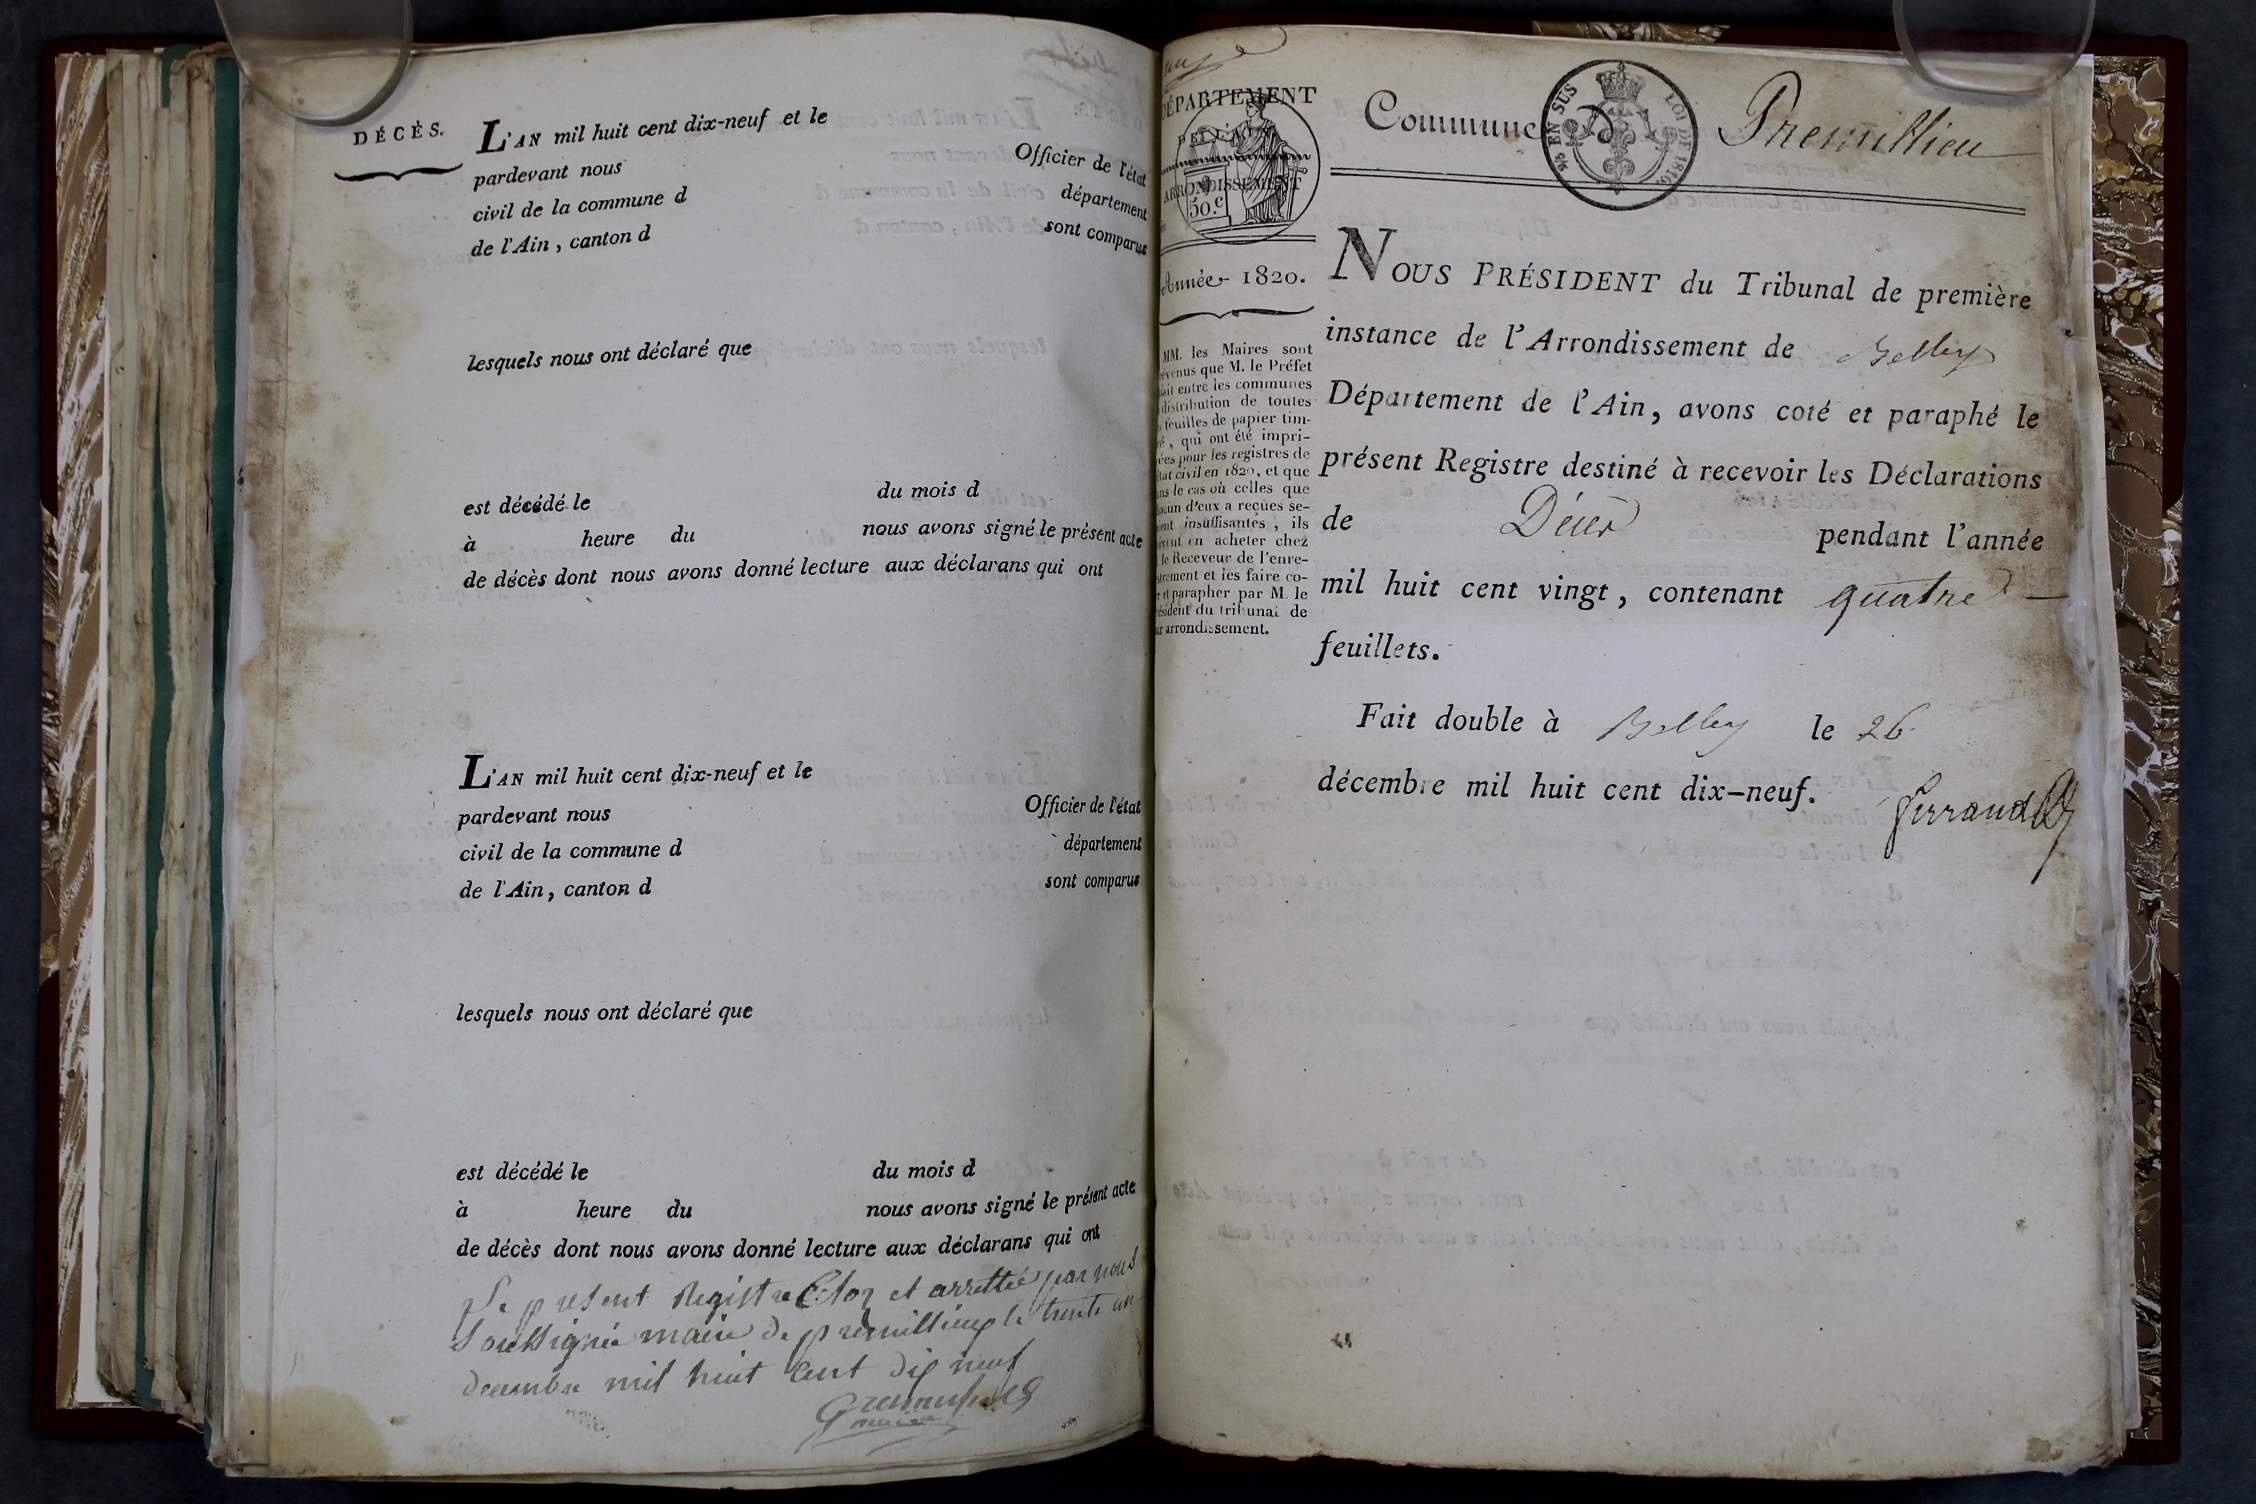 DÉCÈS.
L'AN mil huit cent dix-neuf et le
pardevant nous Officier de l'état
civil de la commune d département
de l'Ain, canton d sont comparus
lesquels nous ont déclaré que
est décédé le du mois d
à heure du nous avons signé le présent acte
de décès dont nous avons donné lecture aux déclarans qui ont
L'AN mil huit cent dix-neuf et le
pardevant nous Officier de l'état
civil de la commune d département
de l'Ain, canton d sont comparus
lesquels nous ont déclaré que
est décédé le du mois d
à heure du nous avons signé le présent acte
de décès dont nous avons donné lecture aux déclarans qui ont
Le present Registre Cloz et arrettée par nous
soussignié maire de premillieux le trente un
decembre mil huit cent dix neuf
maire
DÉPARTEMENT
DE L'
ARRONDISSEMENT
50.c
Année 1820.
MM. les Maires sont
évenus que M. le Préfet
ait entre les communes
distribution de toutes
feuilles de papier tim-
é, qui ont été impri-
ées pour les registres de
état civil en 1820, et que
ns le cas où celles que
acun d'eux a reçues se-
ent insuffisantes, ils
vront en acheter chez
le Receveur de l'enre-
strement et les faire co-
r et parapher par M. le
ésident du tribunal de
ur arrondissement.
Commune d Premillieu
¼ EN SUS LOI DE 1816.
NOUS PRÉSIDENT du Tribunal de première
instance de l'Arrondissement de Belley
Département de l'Ain, avons coté et paraphé le
présent Registre destiné à recevoir les Déclarations
de Décès pendant l'année
mil huit cent vingt, contenant quatre
feuillets.
Fait double à Belley le 26
décembre mil huit cent dix-neuf.
Ferrand